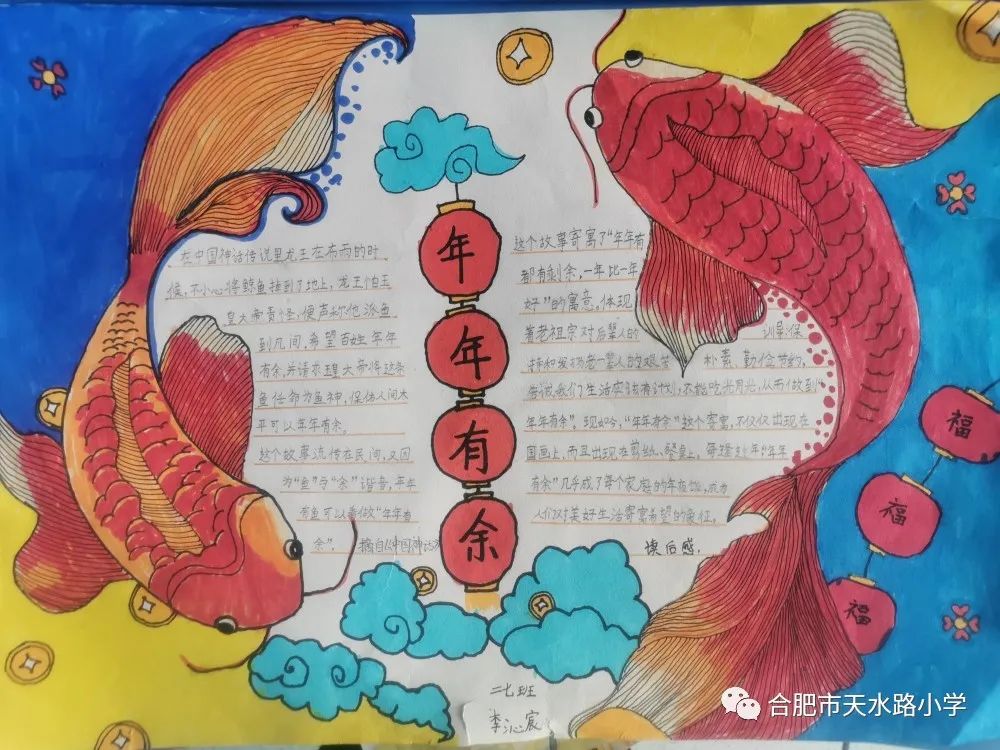 年
年
有
余
在中国神话传说里龙王在布雨的时
候,不小心将鲸鱼挂到了地上,龙王怕玉
皇大帝责怪,便声称他派鱼
到凡间,希望百姓年年
有余,并请求玉皇大帝将这条
鱼任命为鱼神,保佑人间太
平可以年年有余。
这个故事流传在民间,又因
为“鱼”与“余”谐音,
有鱼可以看做“年年有
余”. 摘自《中国神话》
这个故事寄寓了“年年有
都有剩余,一年比一年
好”的寓意。体现
着老祖宗对后辈人的 训导:保
持和发扬老一辈人的艰苦 朴素,勤俭节约,
告诫我们生活应该有计划,不能吃光用光,从而做到“
年年有余”。现如今,“年年有余”这个寄寓,不仅仅出现在
国画上,而且出现在剪纸、餐桌上,每逢过年“年年
有余”几乎成了每个家庭的年夜饭,成为
人们对美好生活寄寓希望的象征。
读后感.
福
福
福
二七班
李沁宸
合肥市天水路小学